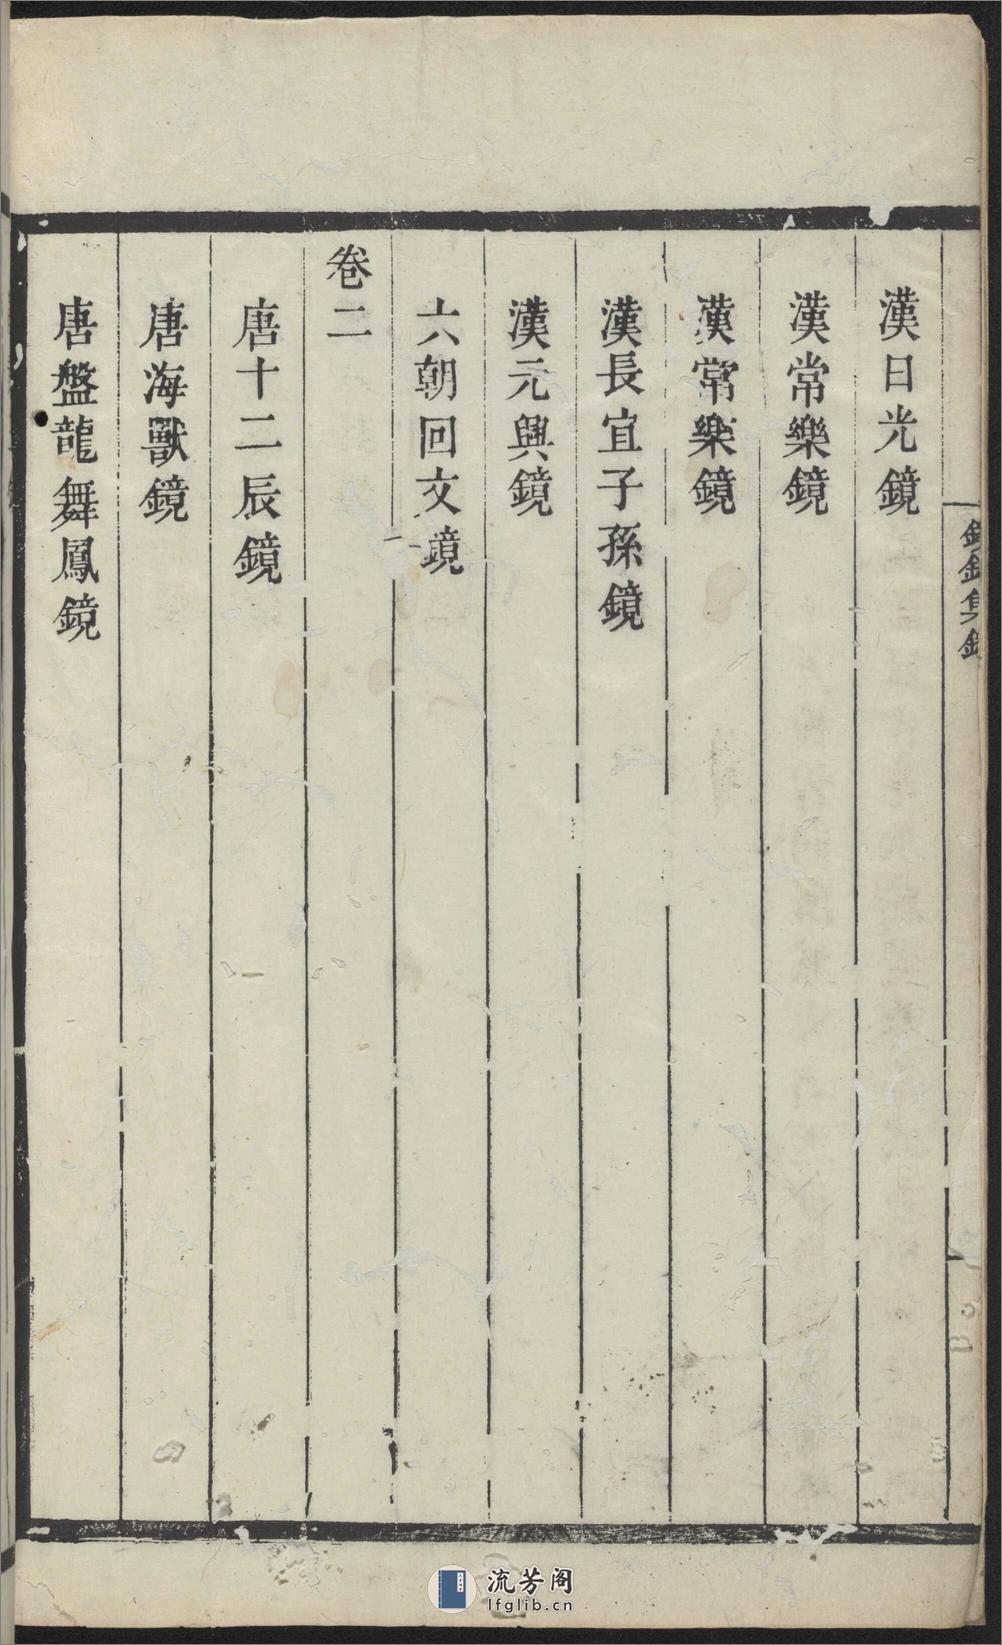 漢日光鏡
漢常樂鏡
漢常樂鏡
漢長宜子孫鏡
漢元興鏡
六朝回文鏡
卷二
唐十二辰鏡
唐海獸鏡
唐盤龍舞鳳鏡
流芳阁
lfglib.cn